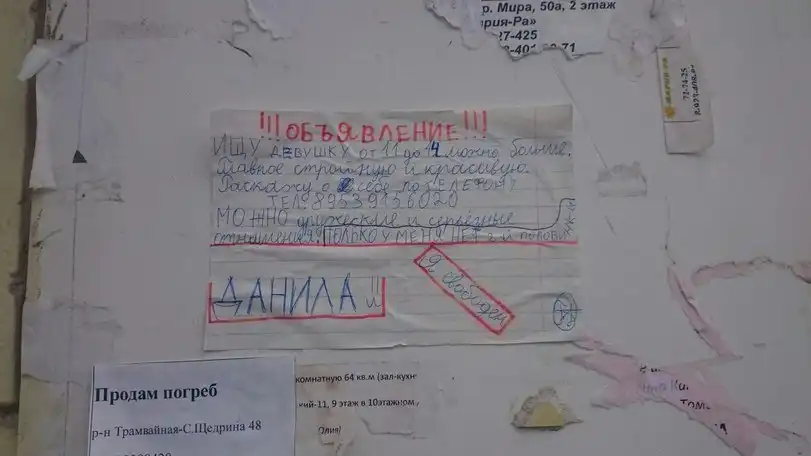 р. Мира, 50а, 2 этаж
рия-Ра»
27-425
!!! ОБЪЯВЛЕНИЕ!!!
ИЩУ дЕВУШКУ от 11 до 14 можно больше.
Главное стройную и красивую.
Раскажу о себе по тЕЛЕФОНУ
ТЕЛ: 89539156020
МОЖНО дружеские и серьёзные
отношения. ТОЛЬКО У МЕНЯ НЕТ 2-й половин
ДАНИЛА !!
Я свободен
Продам погреб
р-н Трамвайная-С.Щедрина 48
комнатную 64 кв.м (зал-кухн
кий-11, 9 этаж в 10этажном
Юлия